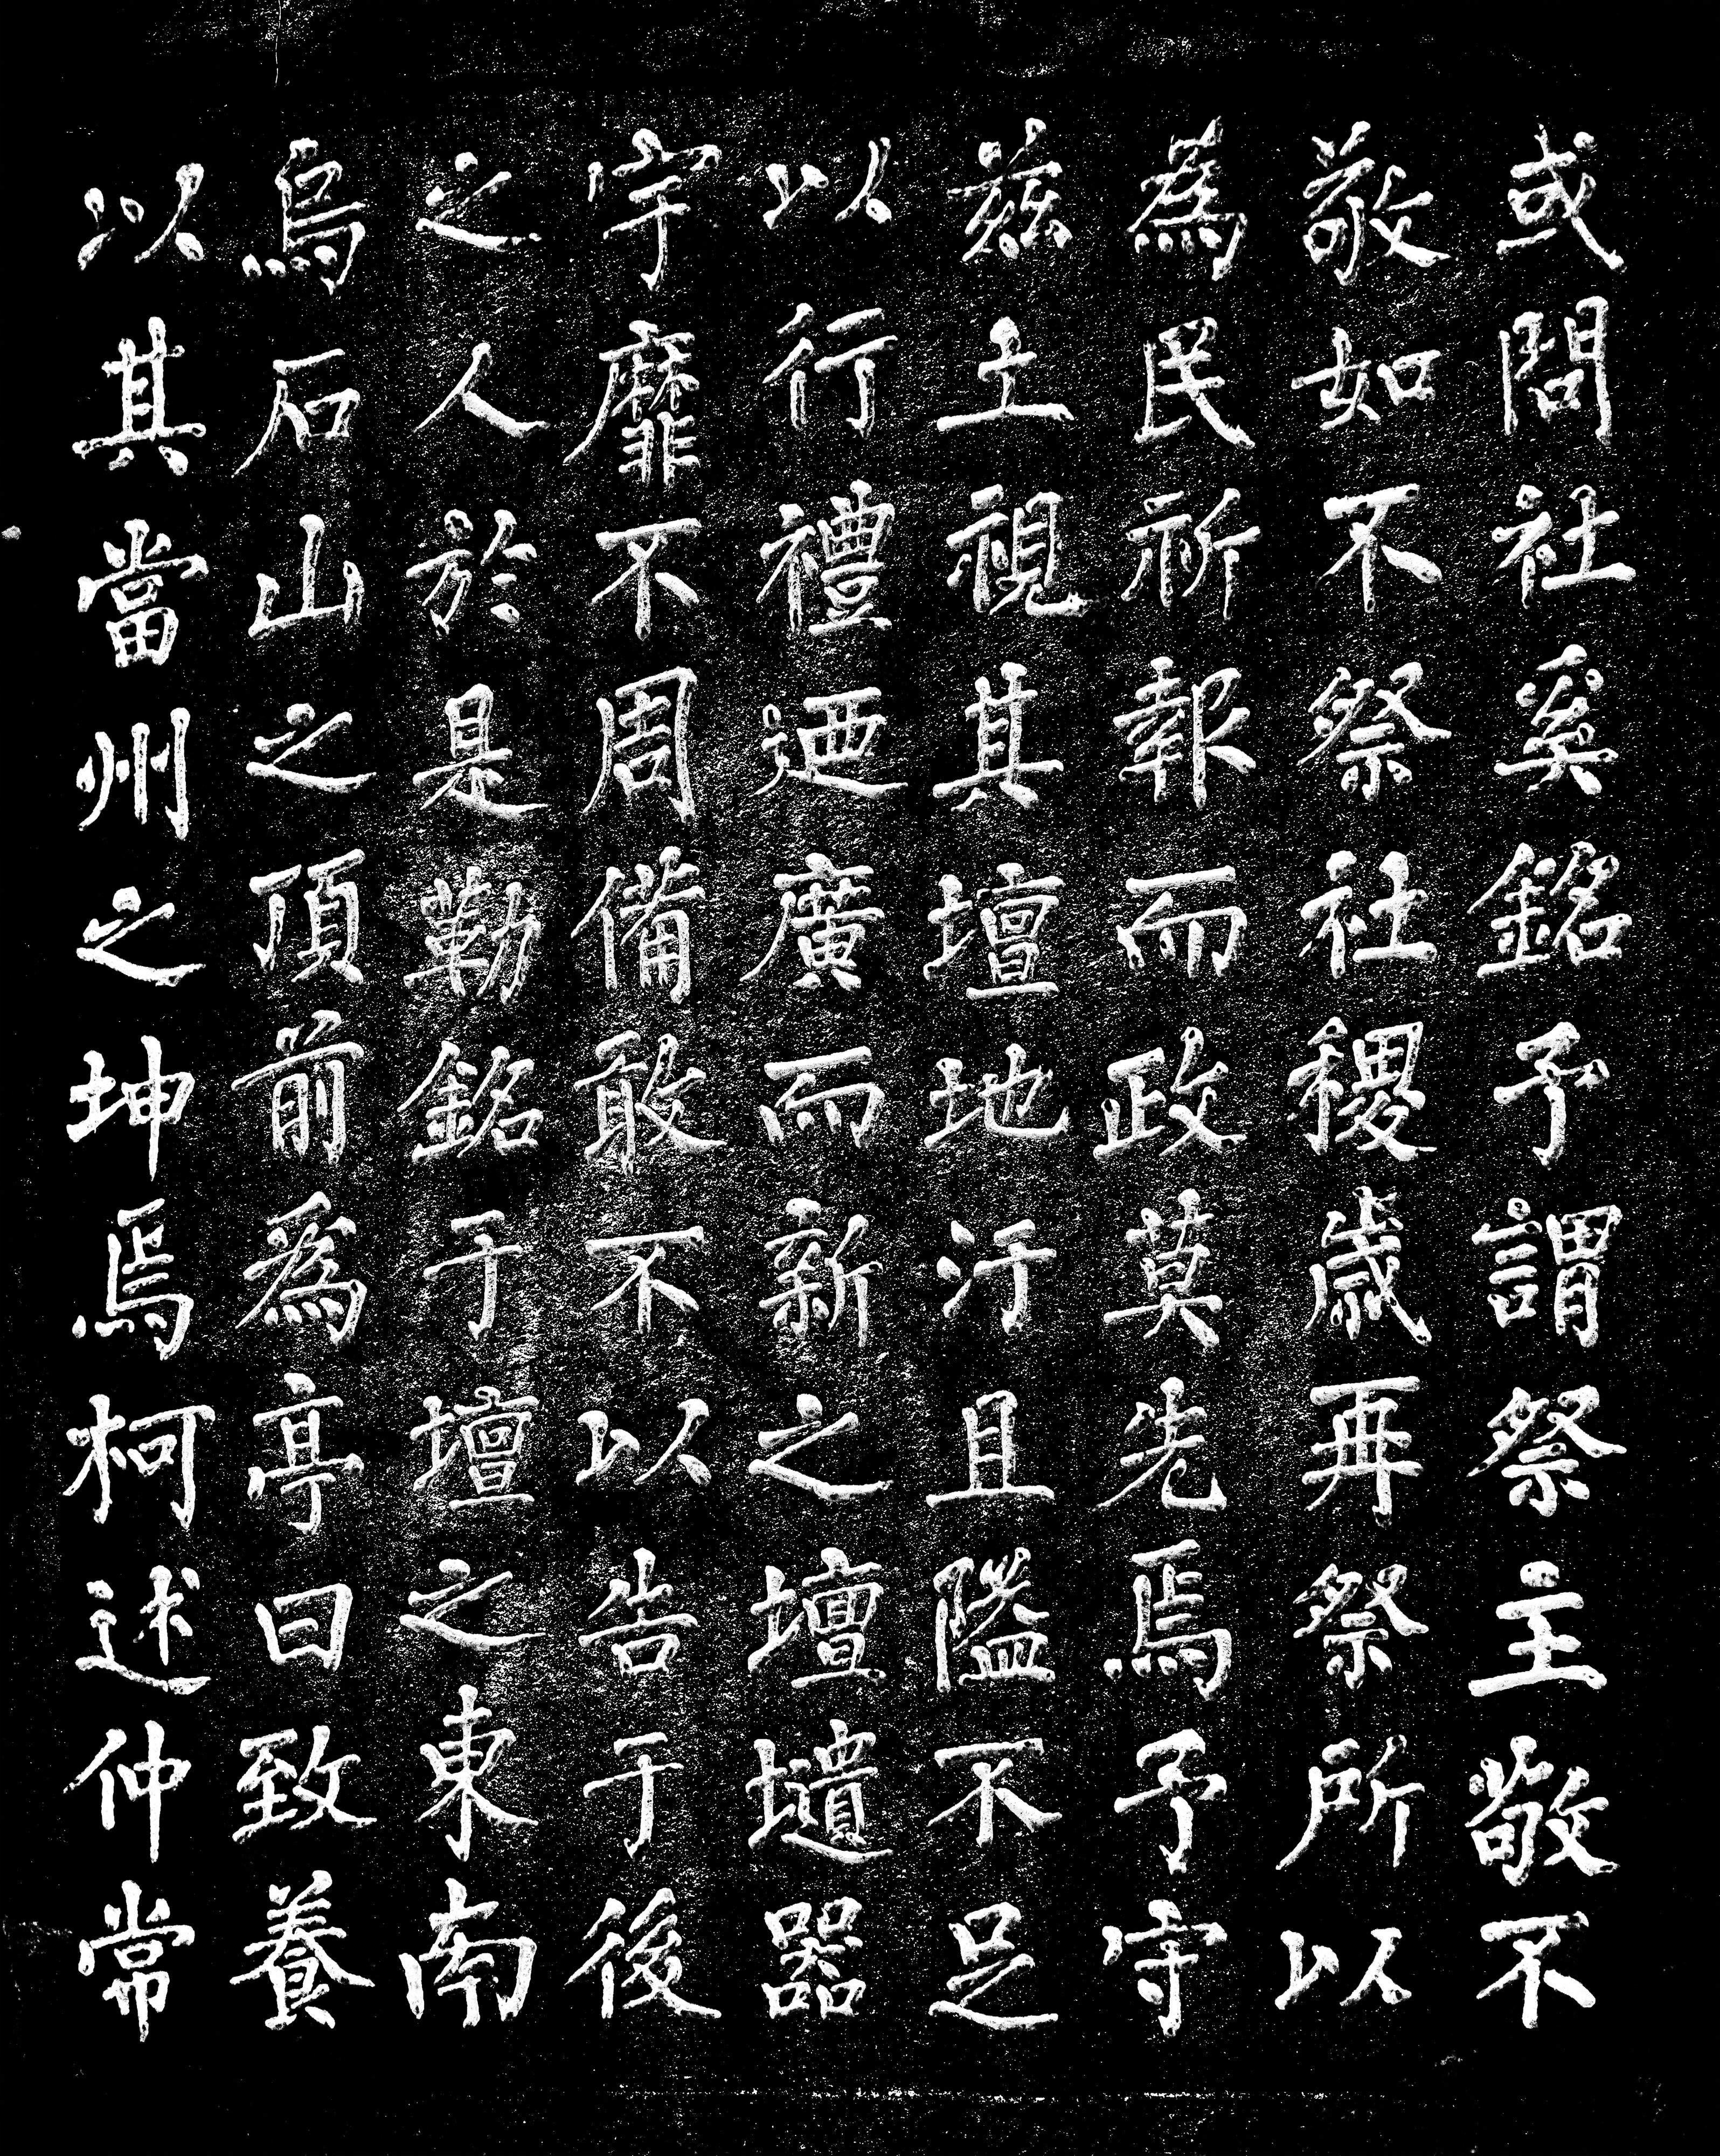 或問社奚銘予謂祭主敬不
敬如不祭社稷歲再祭所以
為民祈報而政莫先焉予守
茲土視其壇地汙且隘不足
以行禮迺廣而新之壇壝器
宇靡不周備敢不以告于後
之人於是勒銘于壇之東南
烏石山之頂前為亭曰致養
以其當州之坤焉柯述仲常